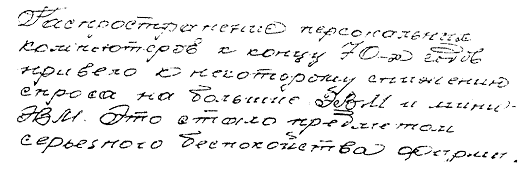 Распространение персональных
компьютеров к концу 70-х годов
привело к некоторому снижению
спроса на большие ЭВМ и мини-
ЭВМ. Это стало предметом
серьезного беспокойства фирмы.